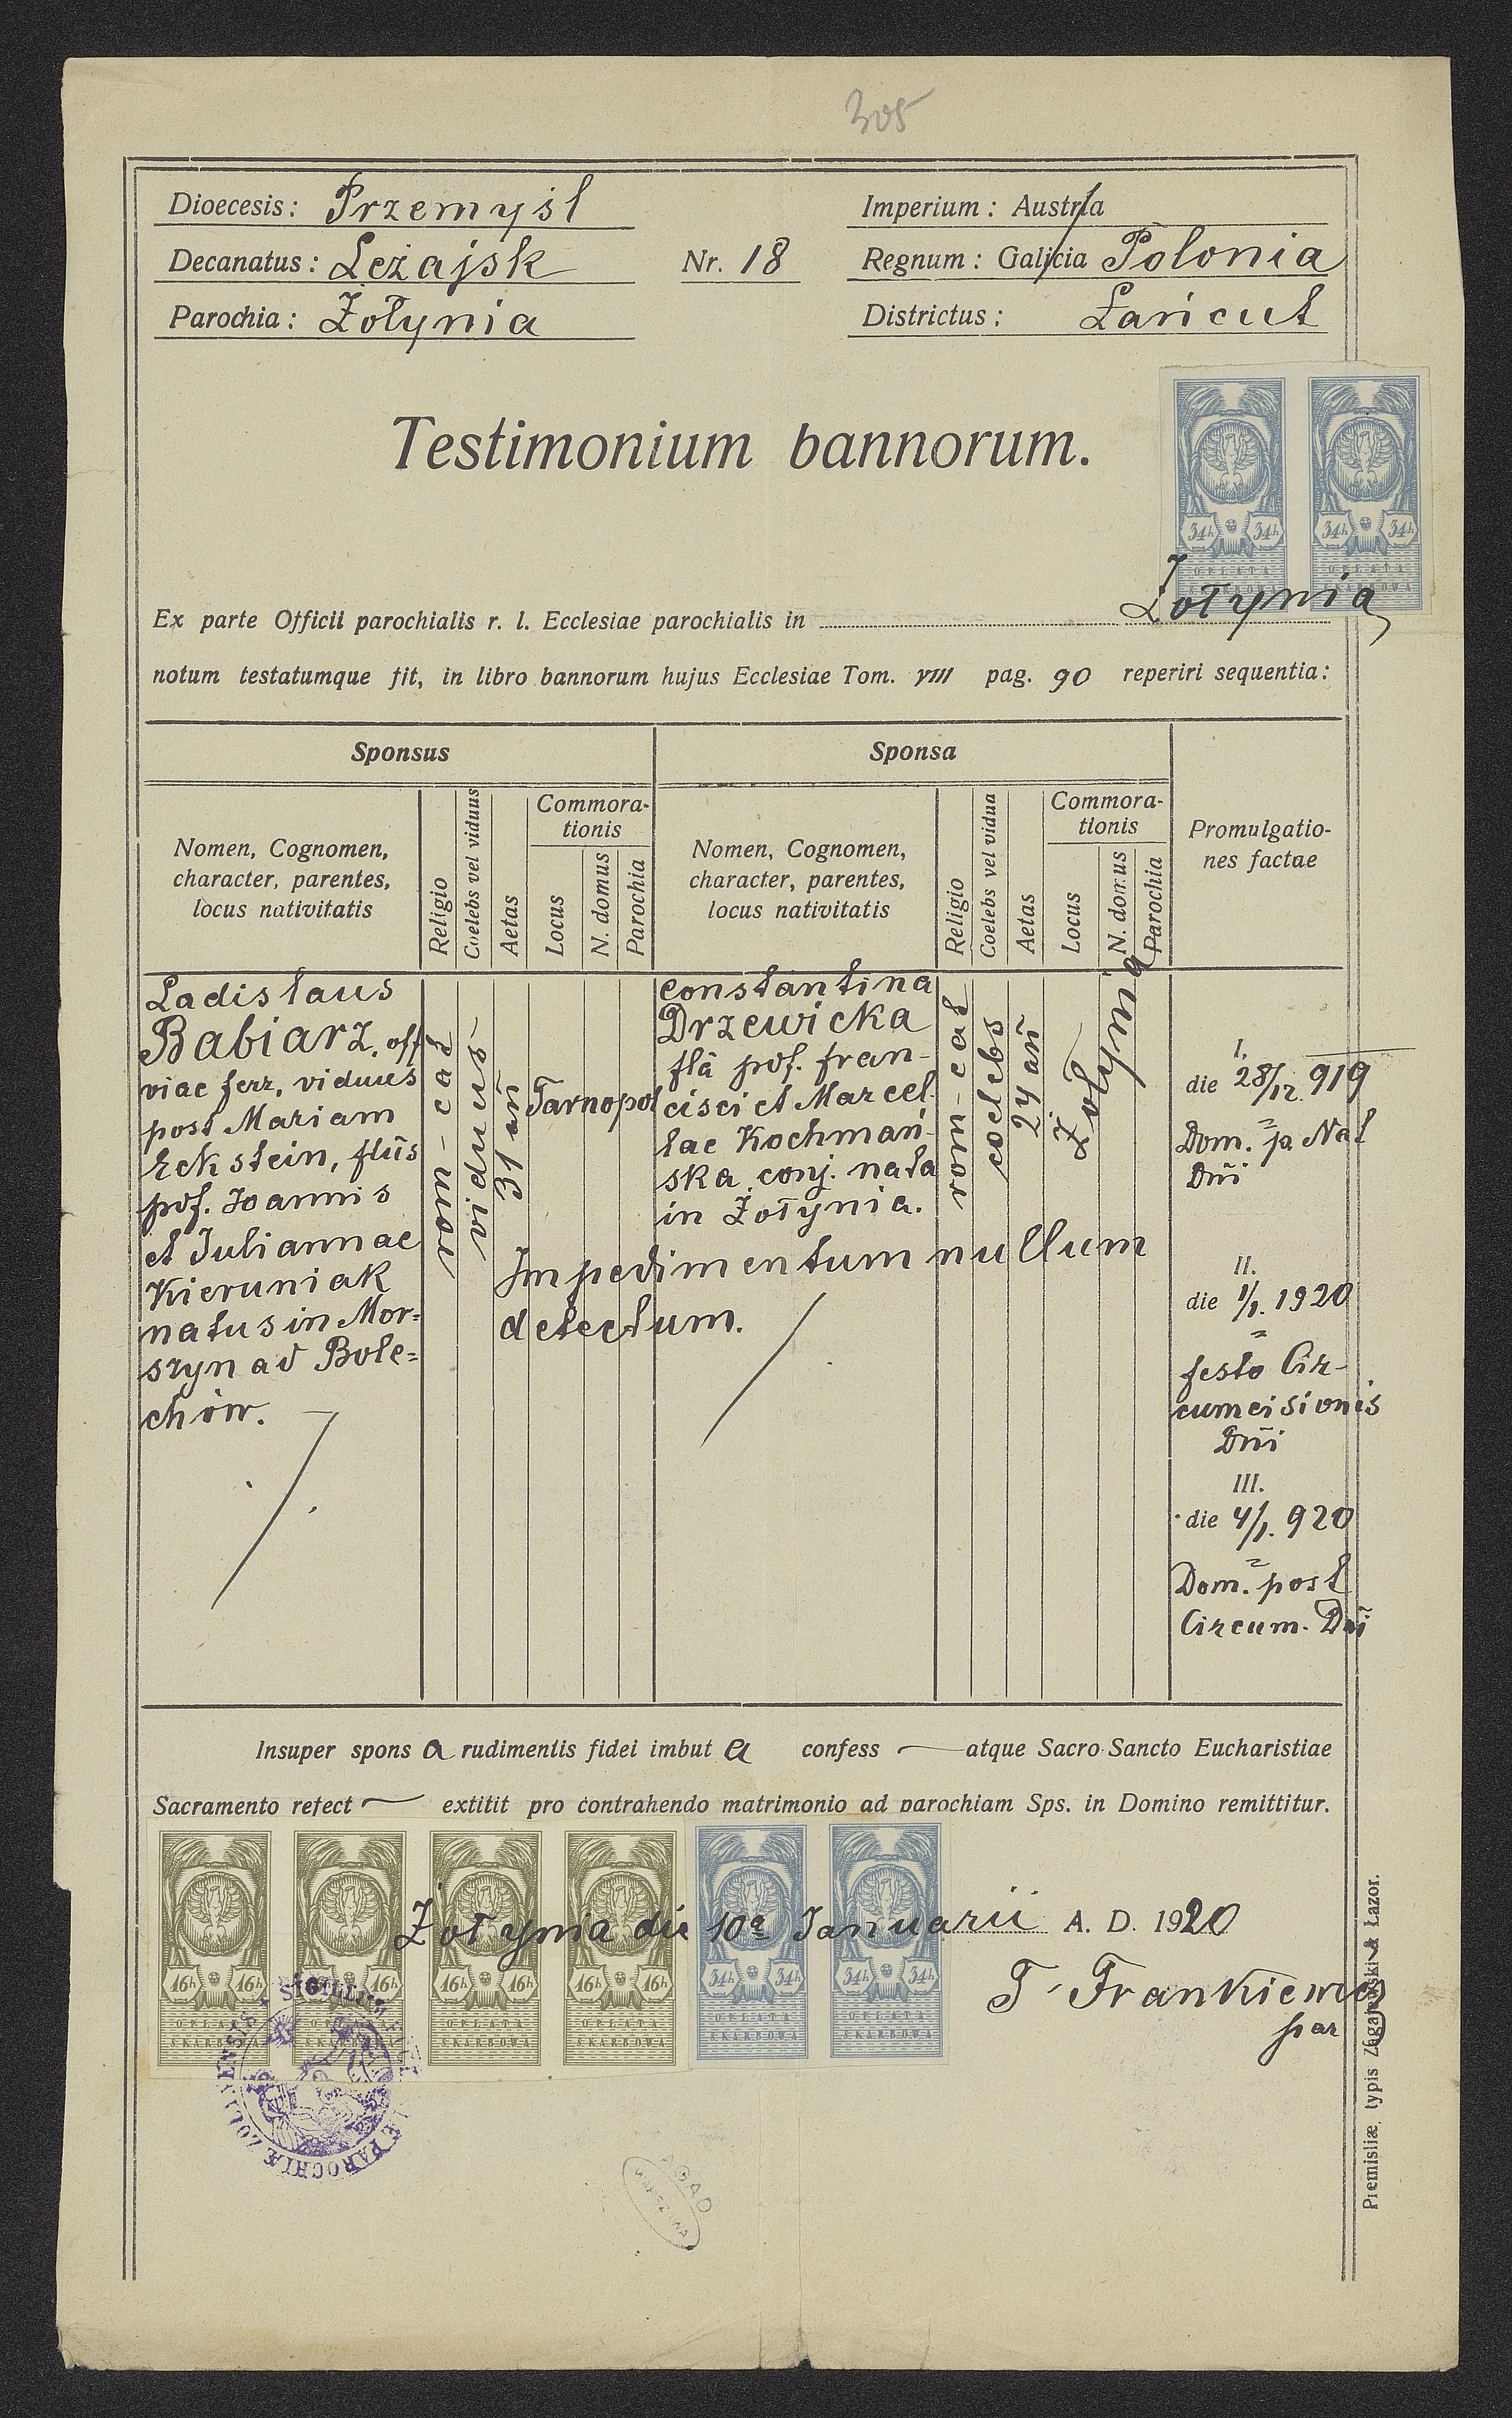 305
Dioecesis: Przemyśl
Imperium: Austria
Decanatus: Leżajsk
Nr. 18
Regnum: Galicia Polonia
Parochia: Żołynia
Districtus: Łańcut
Testimonium bannorum.
34h 34h 34h 34h
OPŁATA OPŁATA
SKARBOWA SKARBOWA
Ex parte Officii parochialis r. l. Ecclesiae parochialis in Żołynia
notum testatumque fit, in libro bannorum hujus Ecclesiae Tom. VIII pag. 90 reperiri sequentia:
Sponsus
Sponsa
Promulgatio-
nes factae
Nomen, Cognomen,
character, parentes,
locus nativitatis
Religio
Coelebs vel viduus
Aetas
Commora-
tionis
Locus
N. domus
Parochia
Nomen, Cognomen,
character, parentes,
locus nativitatis
Religio
Coelebs vel vidua
Aetas
Commora-
tionis
Locus
N. domus
Parochia
Ladislaus
Babiarz, off
viae ferr, viduus
post Mariam
Eckstein, flūs
pdf. Joannis
et Juliannae
Kieruniak
natus in Mor=
szyn ad Bole=
chów.
rom-cat
viduus
31 añ
Tarnopol
Constantina
Drzewicka
fla pdf. Fran-
cisci et Marcel-
lae Kochmań-
ska conj. nata
in Żołynia.
rom-cat
coelebs
24 añ
Żołynia
Impedimentum nullum
detectum.
I.
die 28/12. 919
Dom. p. Nat
Dñi
II.
die 1/1. 1920
festo Cir-
cumcisionis
Dñi
III.
die 4/1. 920
Dom. post
Circum. Dñi
Insuper spons a rudimentis fidei imbut a confess — atque Sacro Sancto Eucharistiae
Sacramento refect — extitit pro contrahendo matrimonio ad parochiam Sps. in Domino remittitur.
Żołynia die 10a Januarii A. D. 1920
16h 16h 16h 16h 16h 16h 16h 34h 34h 34h 34h
OPŁATA OPŁATA OPŁATA OPŁATA OPŁATA OPŁATA
SKARBOWA SKARBOWA SKARBOWA SKARBOWA SKARBOWA SKARBOWA
T. Frankiewicz
par
SIGILLUM
PAROCHIÆ
Premisliæ, typis & Łazor.